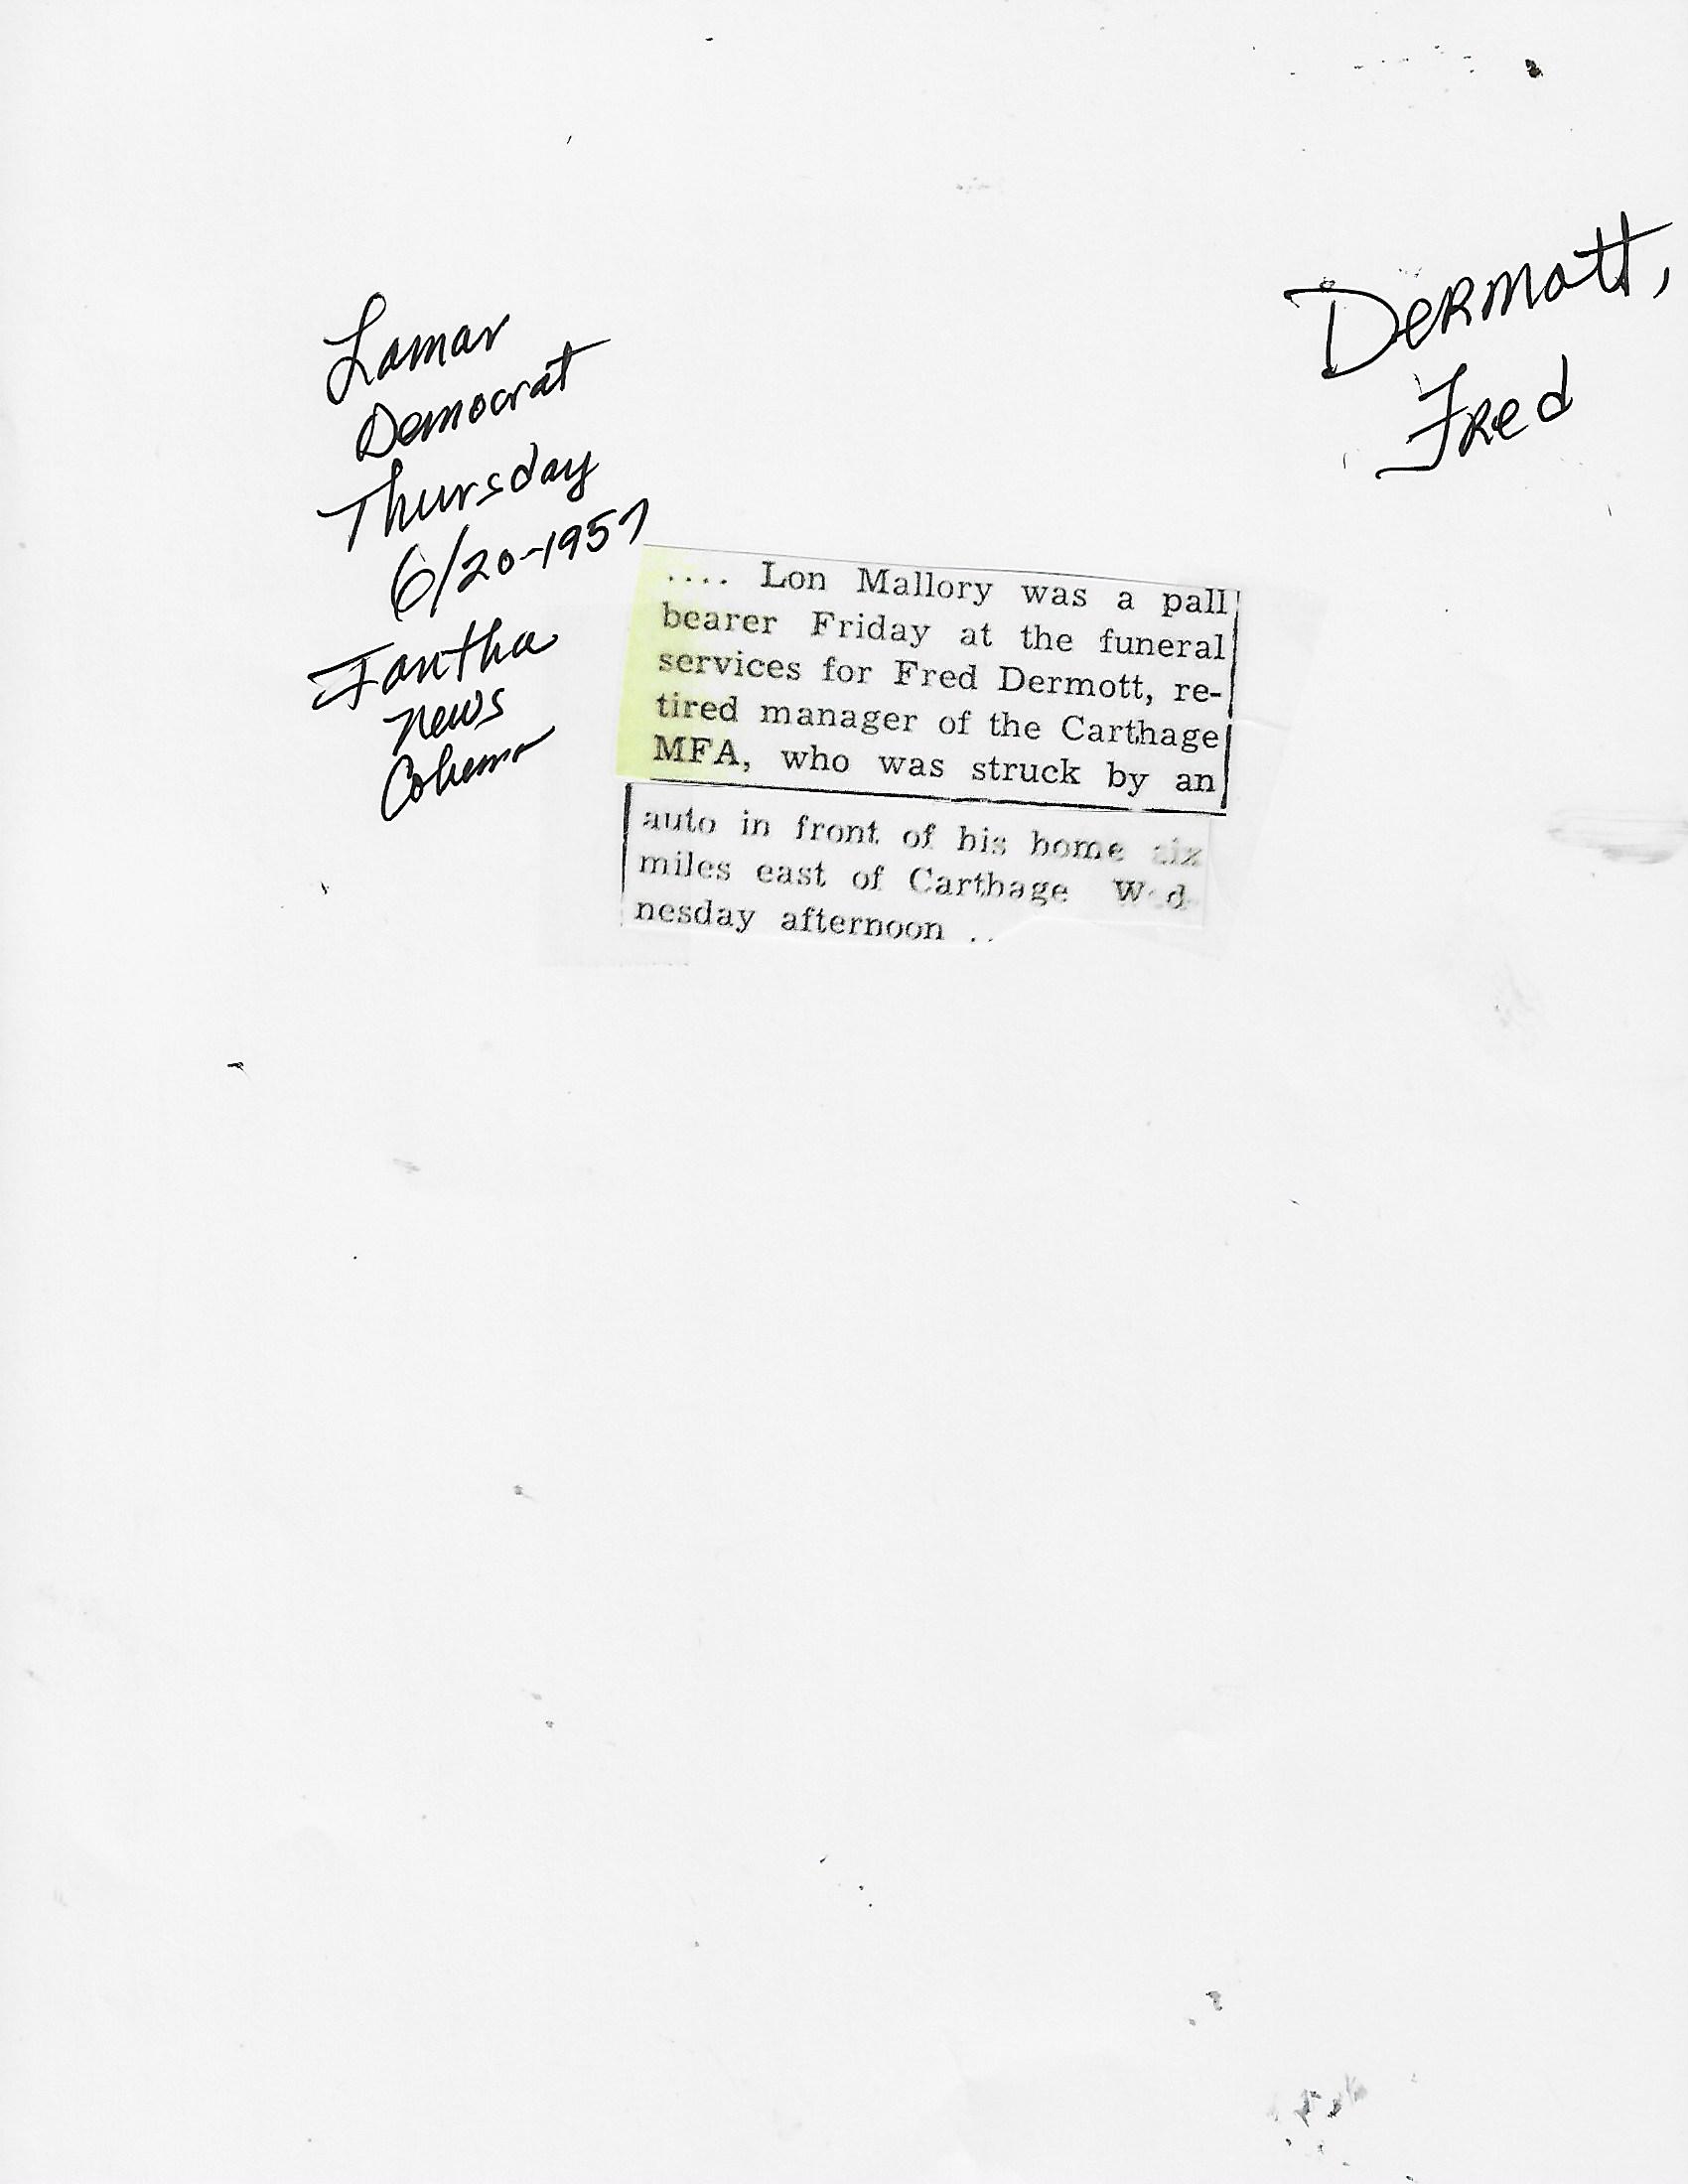 Dermott,
Fred
Lamar
Democrat
Thursday
6/20-1957
Iantha
News
Column
.... Lon Mallory was a pall
bearer Friday at the funeral
services for Fred Dermott, re-
tired manager of the Carthage
MFA, who was struck by an
auto in front of his home six
miles east of Carthage Wed-
nesday afternoon ..